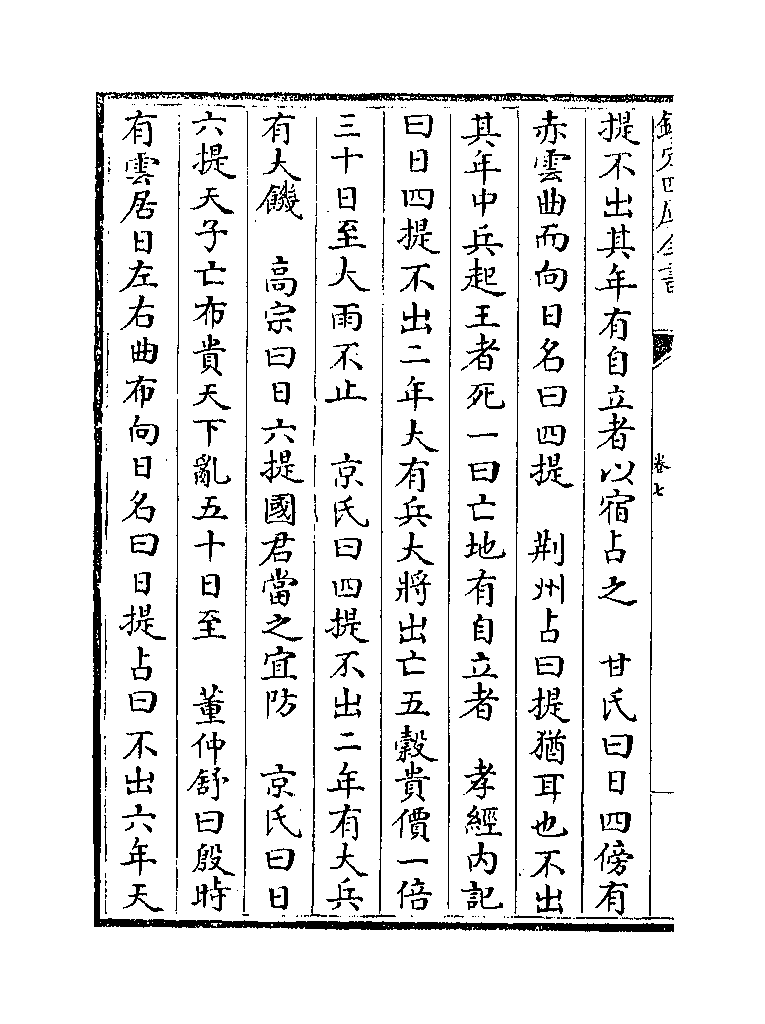 欽定四庫全書
卷七
提不出其年有自立者以宿占之　甘氏曰日四傍有
赤雲曲而向日名曰四提　荆州占曰提猶耳也不出
其年中兵起王者死一曰亡地有自立者　孝經内記
曰日四提不出二年大有兵大將出亡五糓貴價一倍
三十日至大雨不止　京氏曰四提不出二年有大兵
有大饑　高宗曰日六提國君當之宜防　京氏曰日
六提天子亡布貴天下亂五十日至　董仲舒曰殷時
有雲居日左右曲布向日名曰日提占曰不出六年天